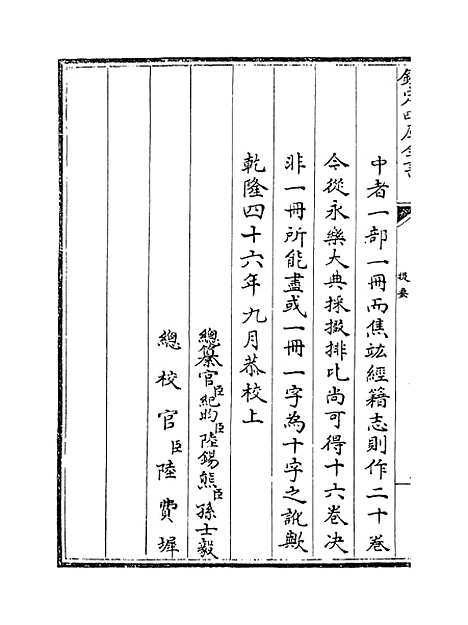 欽定四庫全書
提要
中者一部一冊而焦竑經籍志則作二十卷
今從永樂大典採掇排比尚可得十六卷決
非一冊所能盡或一冊一字為十字之訛歟
乾隆四十六年九月恭校上
總纂官臣紀昀臣陸錫熊臣孫士毅
總校官臣陸費墀